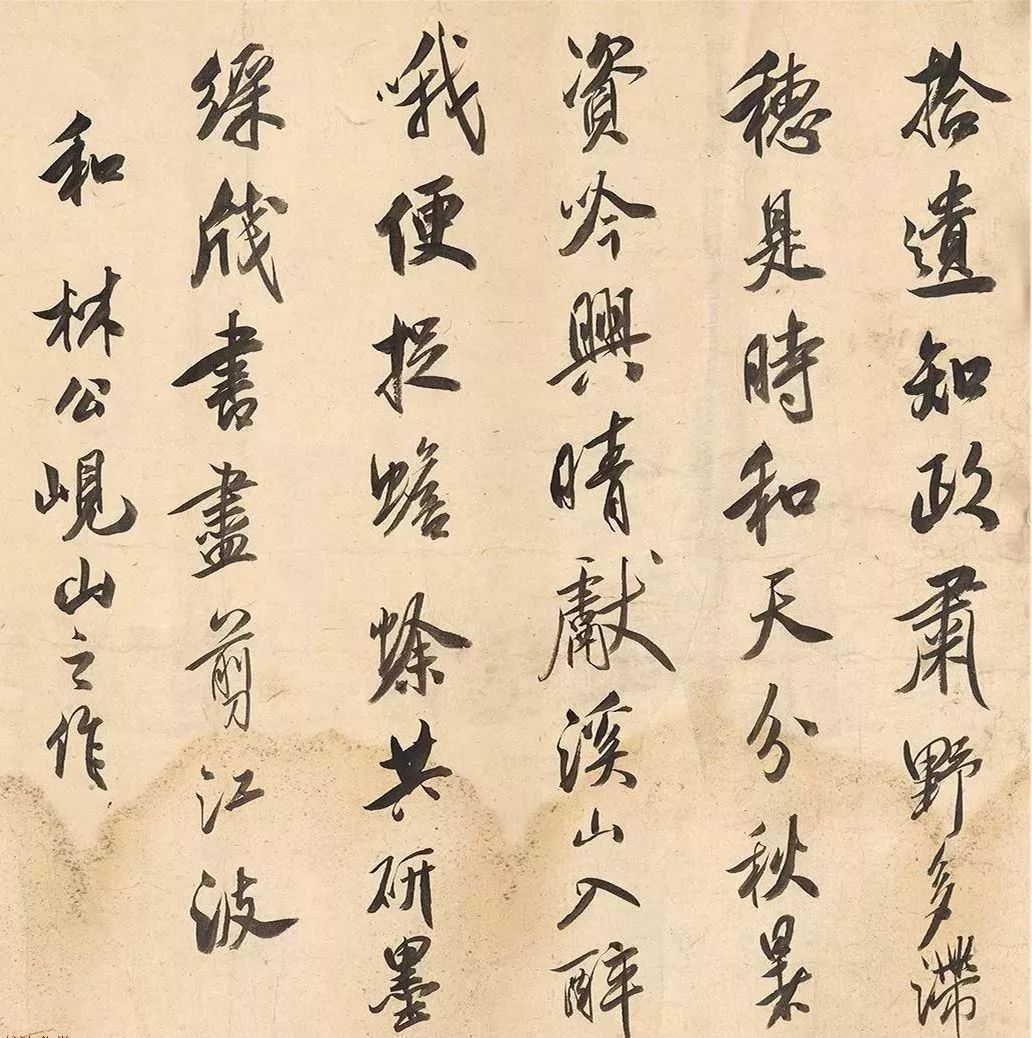 拾遺知政肅野多滯
穗是時和天分秋暑
資吟興晴獻溪山入醉
哦便捉蟾蜍共研墨
綵牋書盡剪江波
和林公峴山之作